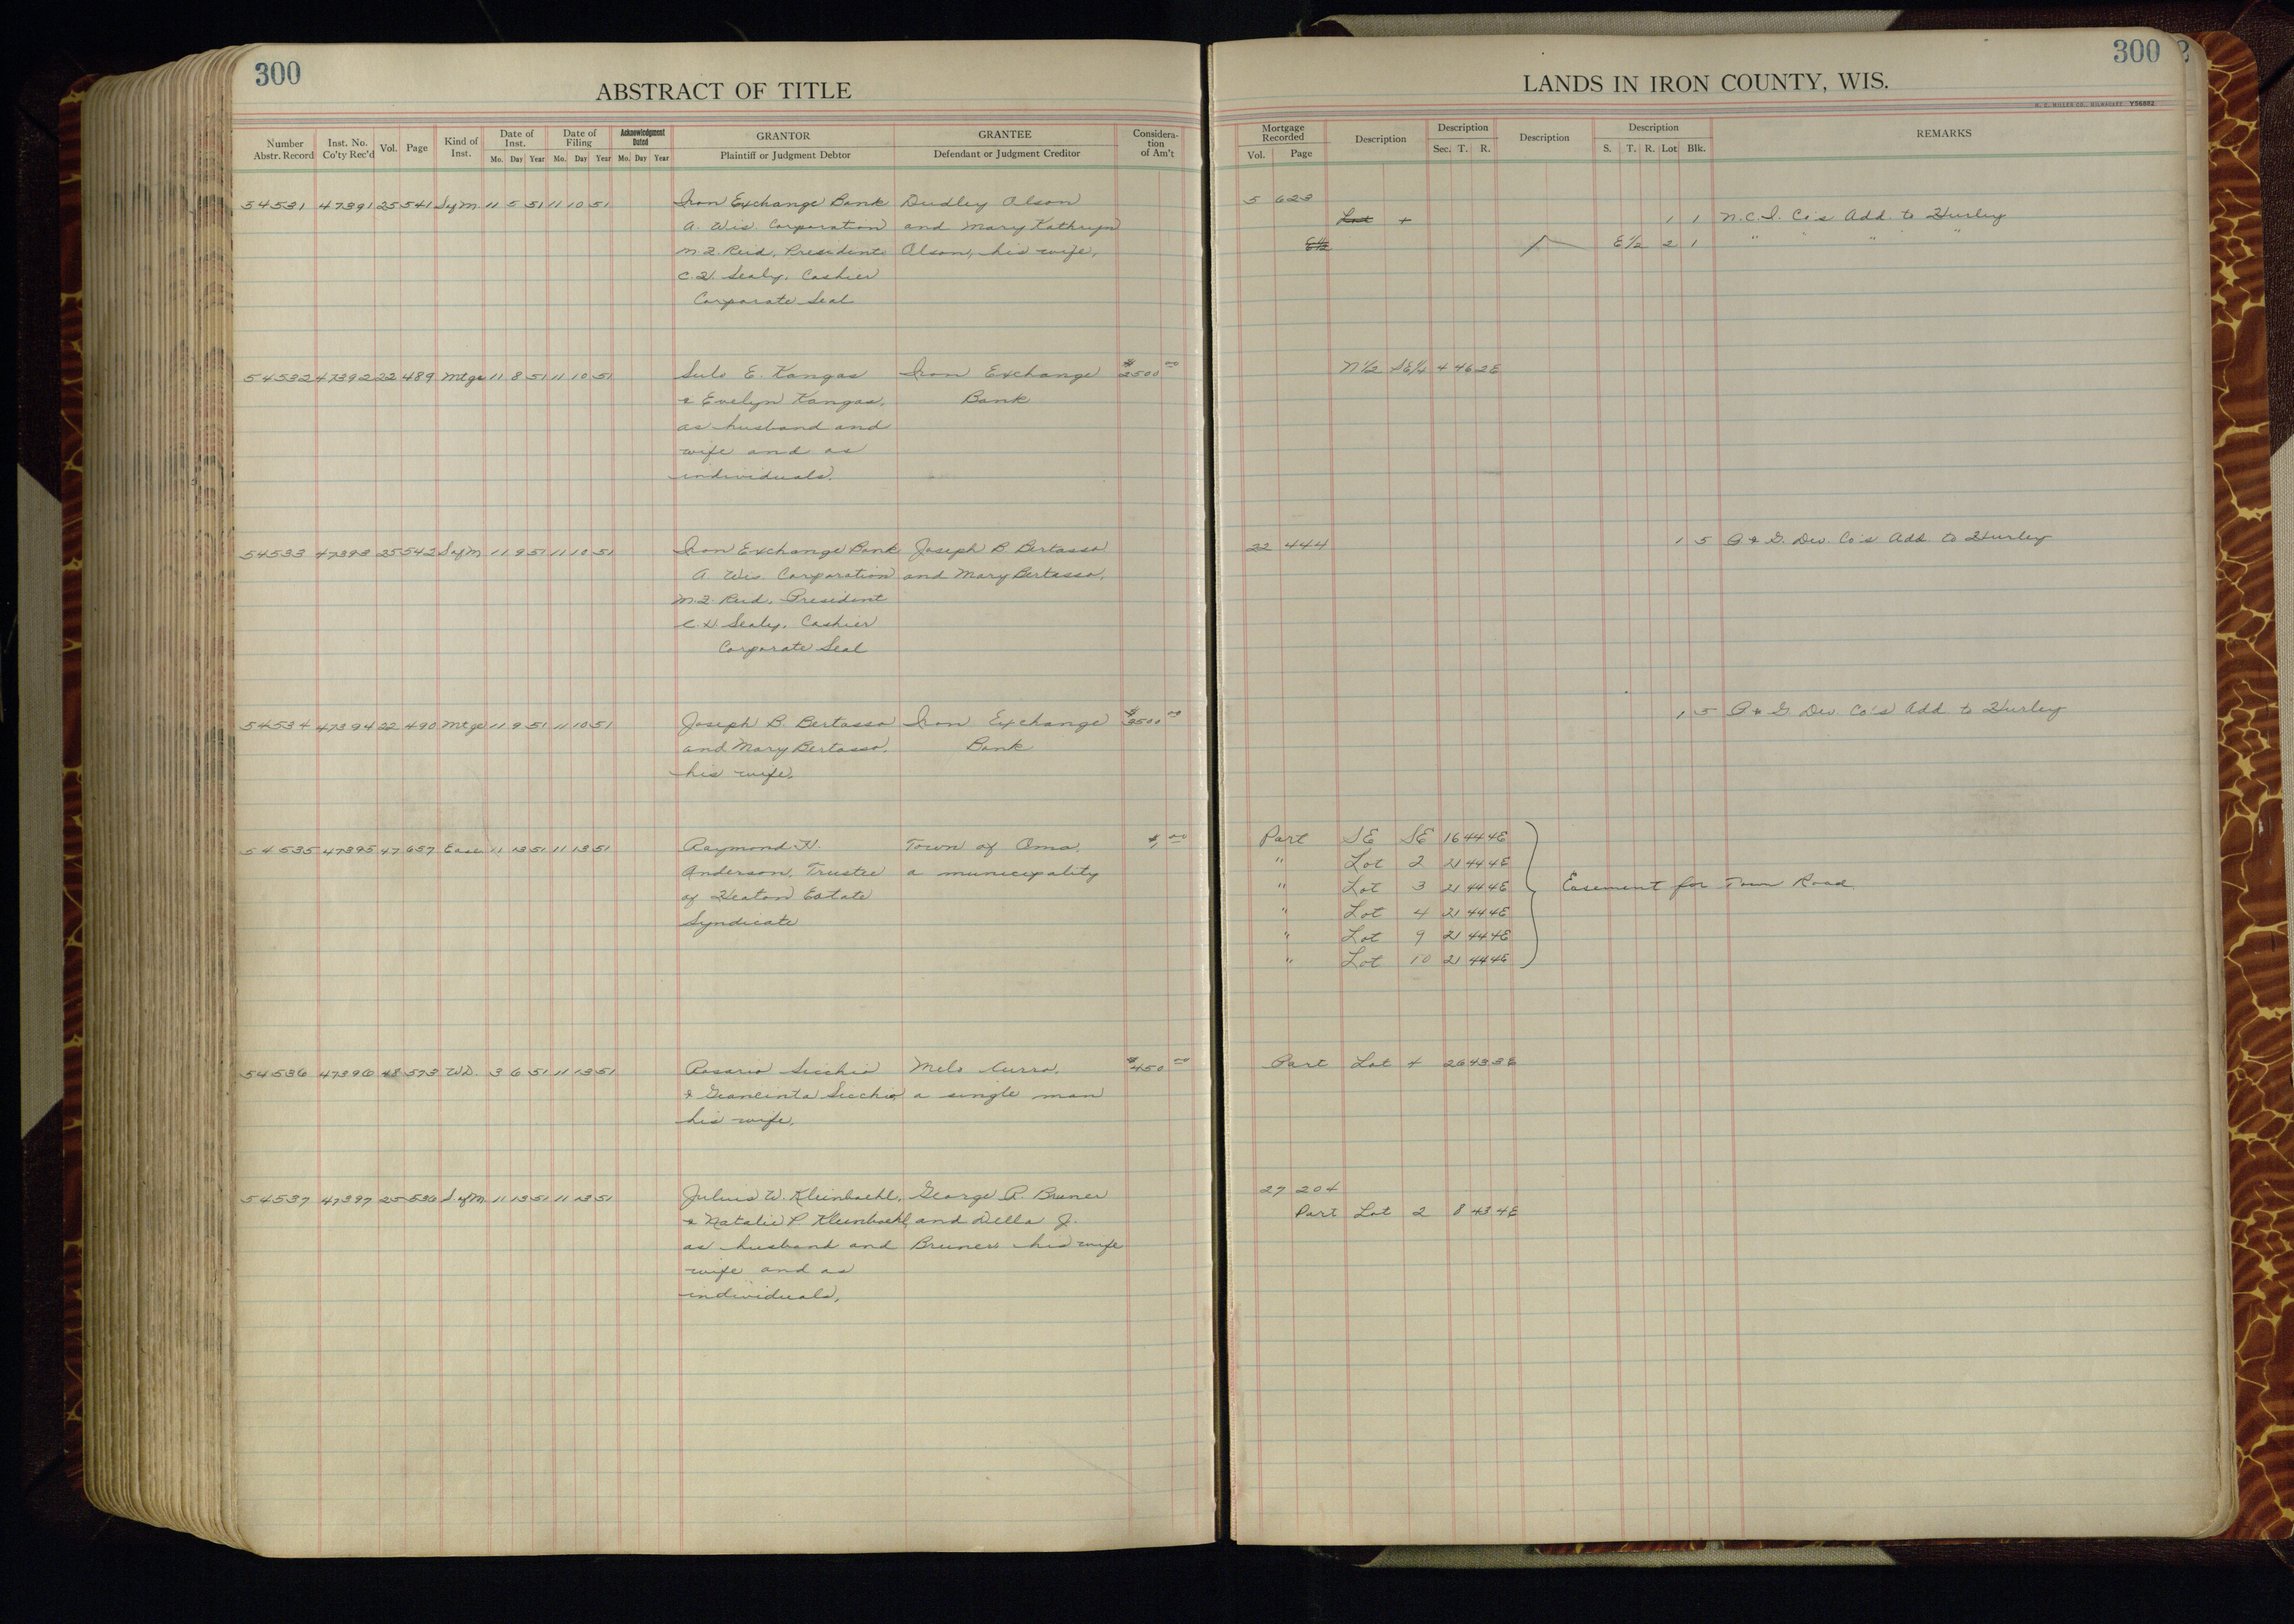 300
ABSTRACT OF TITLE
Number Abstr. Record Inst. No. Co'ty Rec'd Vol. Page Kind of Inst. Date of Inst. Mo. Day Year Date of Filing Mo. Day Year Acknowledgment Dated Mo. Day Year GRANTOR Plaintiff or Judgment Debtor GRANTEE Defendant or Judgment Creditor Considera- tion of Am't
54531 47391 25 541 SofM. 11 5 51 11 10 51 Iron Exchange Bank Dudley Olson
A. Wis. Corporation and Mary Kathryn
President Olson, his wife,
Sealy, Cashier
Corporate Seal
54532 47392 22 489 Mtge 11 8 51 11 10 51 Sulo E. Kangas Iron Exchange $2500 00
& Evelyn Kangas, Bank
as husband and
wife and as
individuals.
54533 47393 25 542 SofM 11 9 51 11 10 51 Iron Exchange Bank Joseph B Bertasso
A. Wis. Corporation and Mary Bertasso,
President
Sealy, Cashier
Corporate Seal
54534 47394 22 490 Mtge 11 9 51 11 10 51 Joseph B. Bertasso Iron Exchange $3500 00
and Mary Bertasso, Bank
his wife,
54535 47395 47 657 Ease 11 13 51 11 13 51 Raymond H. Town of Oma, $1 00
Anderson, Trustee a municipality
of Heaton Estate
Syndicate
54536 47396 48 573 WD. 3 6 51 11 13 51 Rosario Sicchio Melo Curro, $450 00
& Sicchio a single man
his wife,
54537 47397 25 536 SofM 11 13 51 11 13 51 Julius W. Kleinboehl, George R. Bruner
& Natalie P. Kleinboehl and Della J.
as husband and Bruner his wife
wife and as
individuals,
300
LANDS IN IRON COUNTY, WIS.
H. C. MILLER CO., MILWAUKEE Y56882
Mortgage Recorded Vol. Page Description Description Sec. T. R. Description Description S. T. R. Lot Blk. REMARKS
5 623
Lot 4 1 1 N.C.I. Co's Add. to Hurley
E½ E½ 2 1 " " " "
N½ SE¼ 4 46 2E
22 444 1 5 P & G. Dev. Co's Add to Hurley
1 5 P & G. Dev. Co's Add to Hurley
Part SE SE 16 44 4E
" Lot 2 21 44 4E
" Lot 3 21 44 4E Easement for Town Road.
" Lot 4 21 44 4E
" Lot 9 21 44 4E
" Lot 10 21 44 4E
Part Lot 4 26 43 3E
27 204
Part Lot 2 8 43 4E